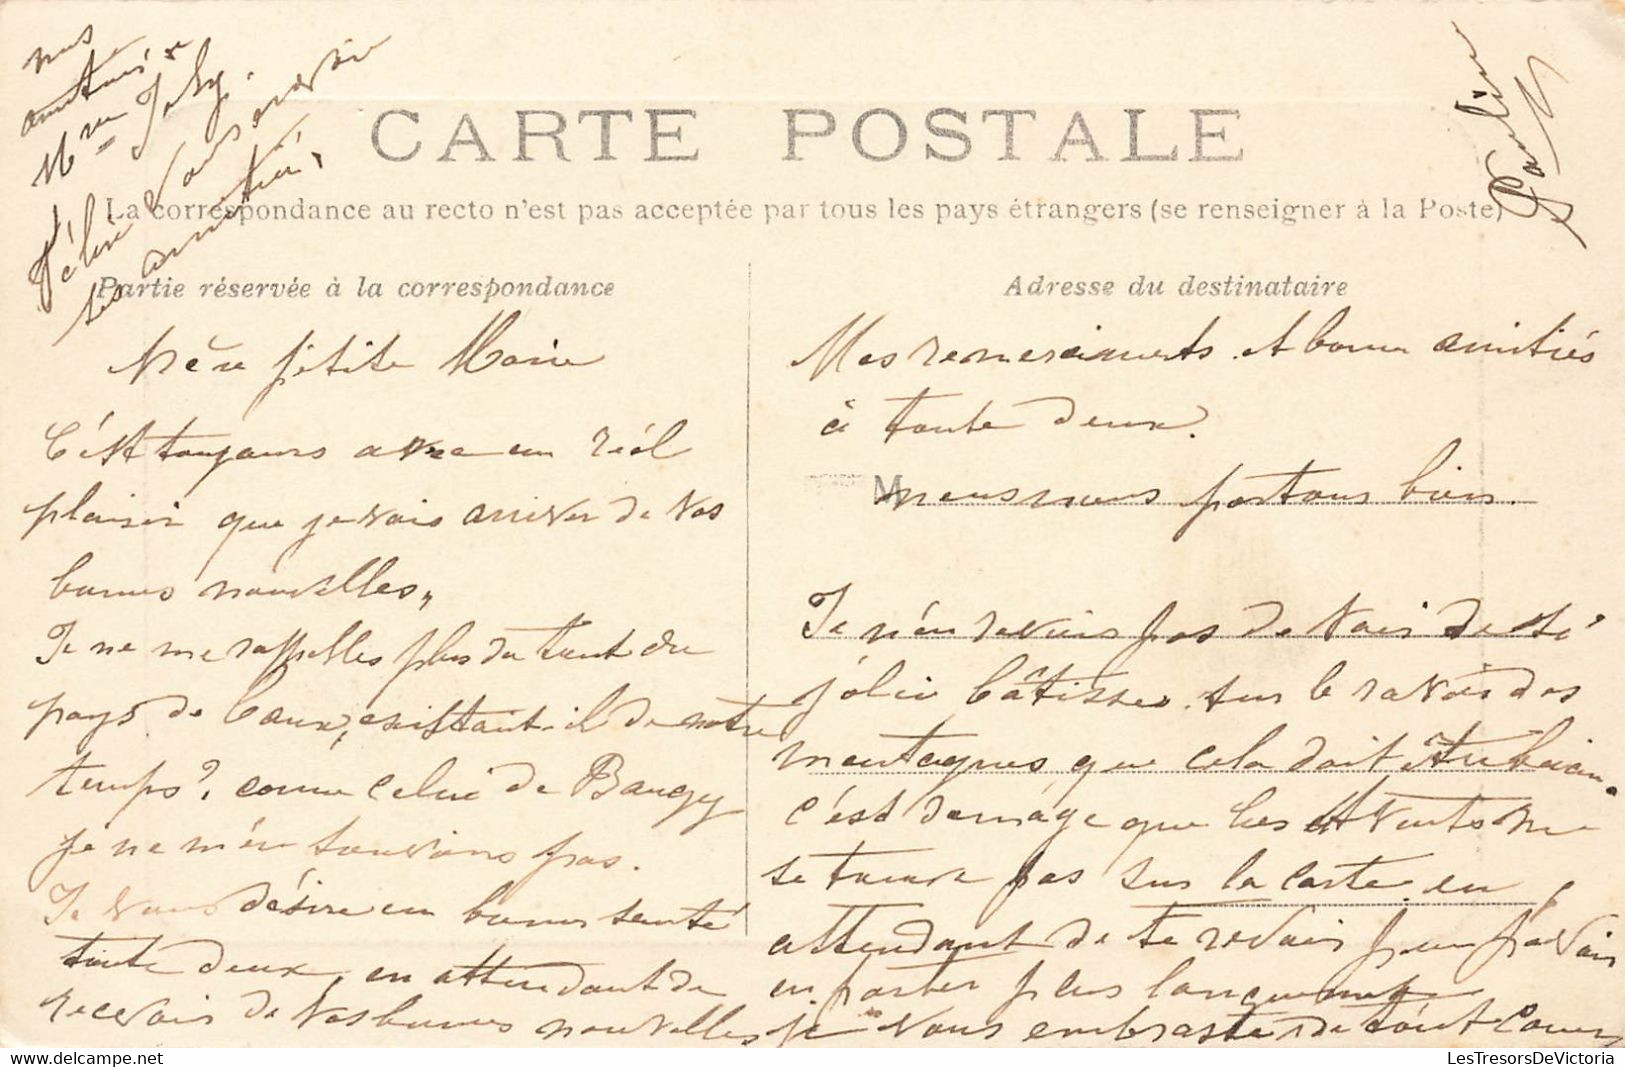 nos
amitiés à
Mme Joly.
Céline vous envoie
ses amitiés,
Pauline
CARTE POSTALE
La correspondance au recto n'est pas acceptée par tous les pays étrangers (se renseigner à la Poste)
Partie réservée à la correspondance
Adresse du destinataire
petite Marie
C'est toujours avec un réel
plaisir que je vois arriver de vos
bonnes nouvelles,,
Je ne me rappelles plus du tout du
pays de existtait-il de notre
temps? comme celui de Baugy
je ne m'en souviens pas.
Je vous désire en bonne senté
toute deux, en attendant de
recevoir de vos bonnes nouvelles
Mes remerciments et bonne amitiés
à toute deux.
M
nousnous portons bien.
Je n'en reviens pas de voir de si
jolie bâtisse sur le ravoir des
montagnes que cela doit être bien.
c'est demage que les vents ne
se trouve pas sur la carte en
attendant de te revoir pour pouvoir
en parler plus longuement
je vous embrasse de tout coeur
LesTresorsDeVictoria